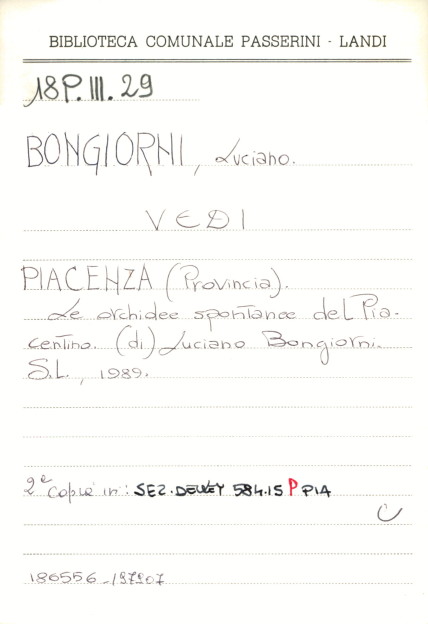 BIBLIOTECA COMUNALE PASSERINI - LANDI
18P.III.29
BONGIORNI, Luciano.
VEDI
PIACENZA (Provincia).
Le orchidee spontanee del Pia-
centino. (di) Luciano Bongiorni.
S.L., 1989.
2ª Copia in: SEZ. DEWEY 584.15 P PIA
186556-197907